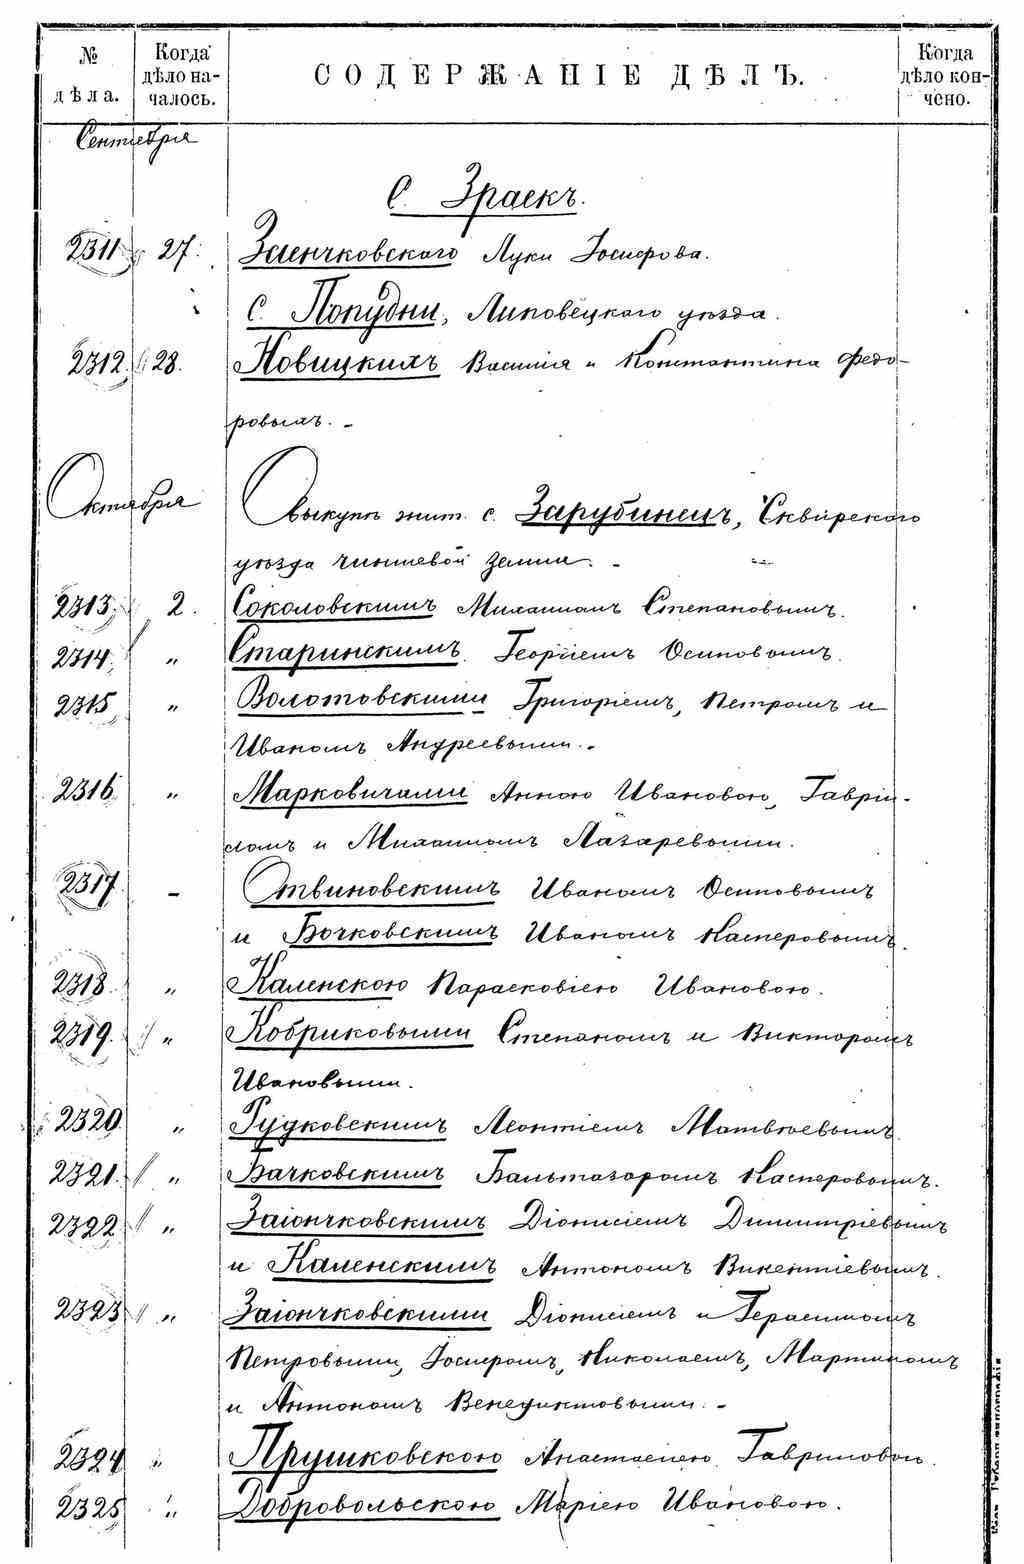 № дѣла.
Когда дѣло началось.
СОДЕРЖАНІЕ ДѢЛЪ.
Когда дѣло кончено.
Сентября
С. Зраекъ.
2311 27. Заенчковскаго Луки Іосифова.
С. Попудни, Липовецкаго уѣзда.
2312. 28. Новицкихъ Василія и Константина Федо-
ровыхъ. -
Октября О выкупѣ жит. с. Зарубинецъ, Сквирскаго
уѣзда чиншевой земли. -
2313. 2. Соколовскимъ Михаиломъ Степановымъ.
2314. „ Старинскимъ Георгіемъ Осиповымъ.
2315 „ Волотовскими Григоріемъ, Петромъ и
Иваномъ Андреевыми. -
2316. „ Марковичами Анною Ивановою, Гавріи-
ломъ и Михаиломъ Лазаревыми.
2317. - Отвиновскимъ Иваномъ Осиповымъ
и Бочковскимъ Иваномъ Касперовымъ.
2318. „ Каленскою Парасковіею Ивановою.
2319. „ Кобриковыми Степаномъ и Викторомъ
Ивановыми.
2320. „ Гудковскимъ Леонтіемъ Матвѣевымъ.
2321. „ Бачковскимъ Бальтазаромъ Касперовымъ.
2322. „ Заіончковскимъ Діонисіемъ Димитріевымъ
и Каленскимъ Антономъ Викентіевымъ.
2323 „ Заіончковскими Діонисіемъ и Герасимомъ
Петровыми, Іосифомъ, Николаемъ, Мартиномъ
и Антономъ Венедиктовыми. -
2324 „ Прушковскою Анастасіею Гавриловою.
2325 „ Добровольскою Маріею Ивановою.